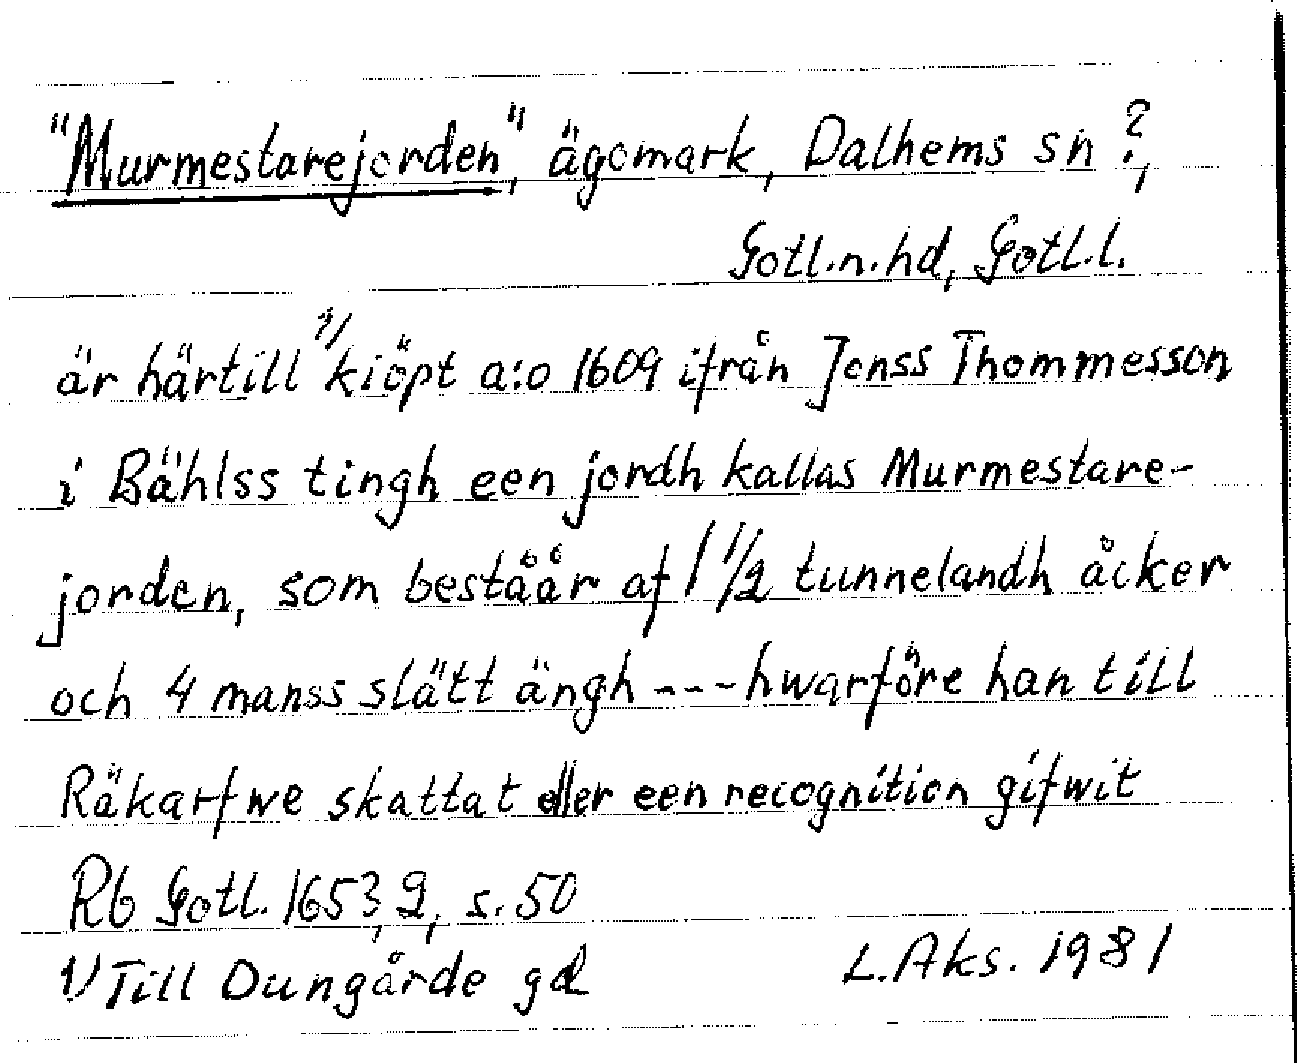 "Murmestarejorden", ägomark, Dalhems sn?,
Gotl.n.hd, Gotl.l.
är härtill 1/ kiöpt a:o 1609 ifrån Jonss Thommesson
i Bählss tingh een jordh kallas Murmestare-
jorden, som beståår af 1 1/2 tunnelandh åcker
och 4 manss slätt ängh --- hwarföre han till
Räkarfwe skattat eller een recognition gifwit
Rb Gotl. 1653, 2, s. 50
1/ Till Dungårde gd L. Aks. 1981